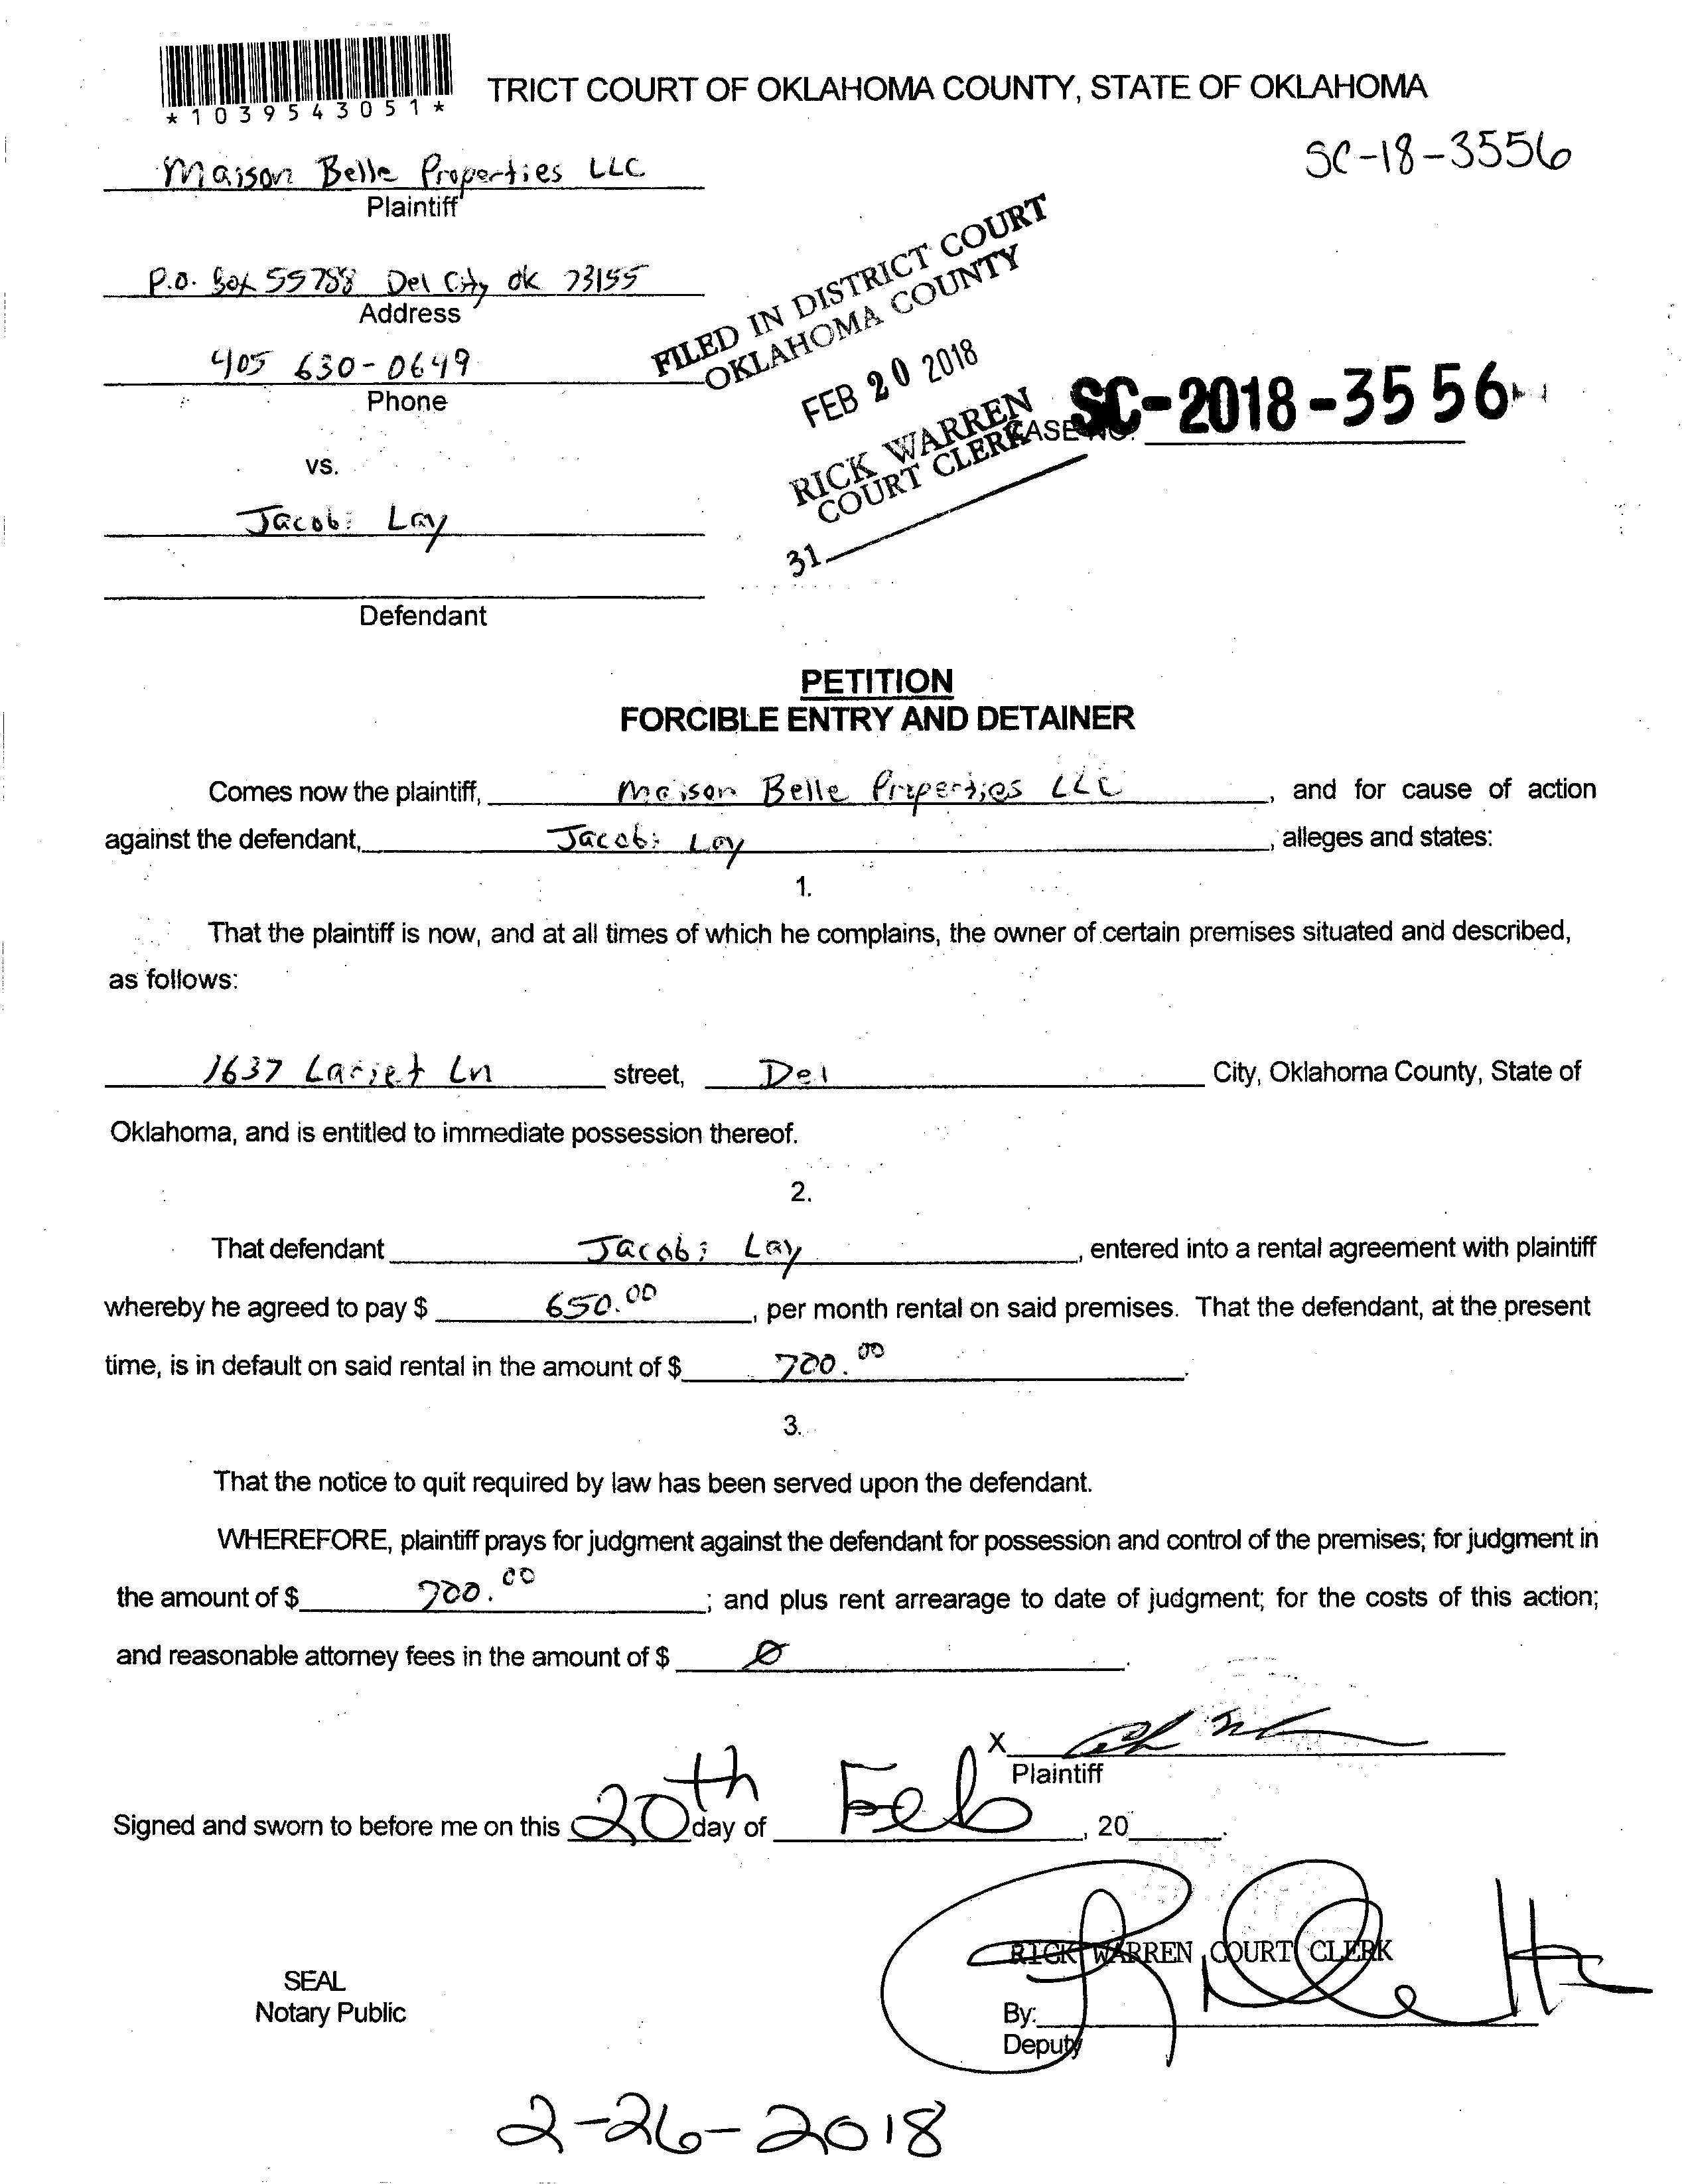 *1039543051*
TRICT COURT OF OKLAHOMA COUNTY, STATE OF OKLAHOMA
SC-18-3556
Maison Belle Properties LLC
Plaintiff
P.O. Box 55788 Del City OK 73155
Address
405 630-0649
Phone
FILED IN DISTRICT COURT
OKLAHOMA COUNTY
FEB 20 2018
RICK WARREN
COURT CLERK
31
CASE NO. SC-2018-3556
vs.
Jacobi Lay
Defendant
PETITION
FORCIBLE ENTRY AND DETAINER
Comes now the plaintiff, Maison Belle Properties LLC, and for cause of action
against the defendant, Jacobi Lay, alleges and states:
1.
That the plaintiff is now, and at all times of which he complains, the owner of certain premises situated and described,
as follows:
1637 Lariet Ln street, Del City, Oklahoma County, State of
Oklahoma, and is entitled to immediate possession thereof.
2.
That defendant Jacobi Lay, entered into a rental agreement with plaintiff
whereby he agreed to pay $ 650.00, per month rental on said premises. That the defendant, at the present
time, is in default on said rental in the amount of $ 700.00.
3.
That the notice to quit required by law has been served upon the defendant.
WHEREFORE, plaintiff prays for judgment against the defendant for possession and control of the premises; for judgment in
the amount of $ 700.00; and plus rent arrearage to date of judgment; for the costs of this action;
and reasonable attorney fees in the amount of $ Ø.
X
Plaintiff
Signed and sworn to before me on this 20th day of Feb, 20 .
RICK WARREN COURT CLERK
SEAL
Notary Public
By:
Deputy
2-26-2018